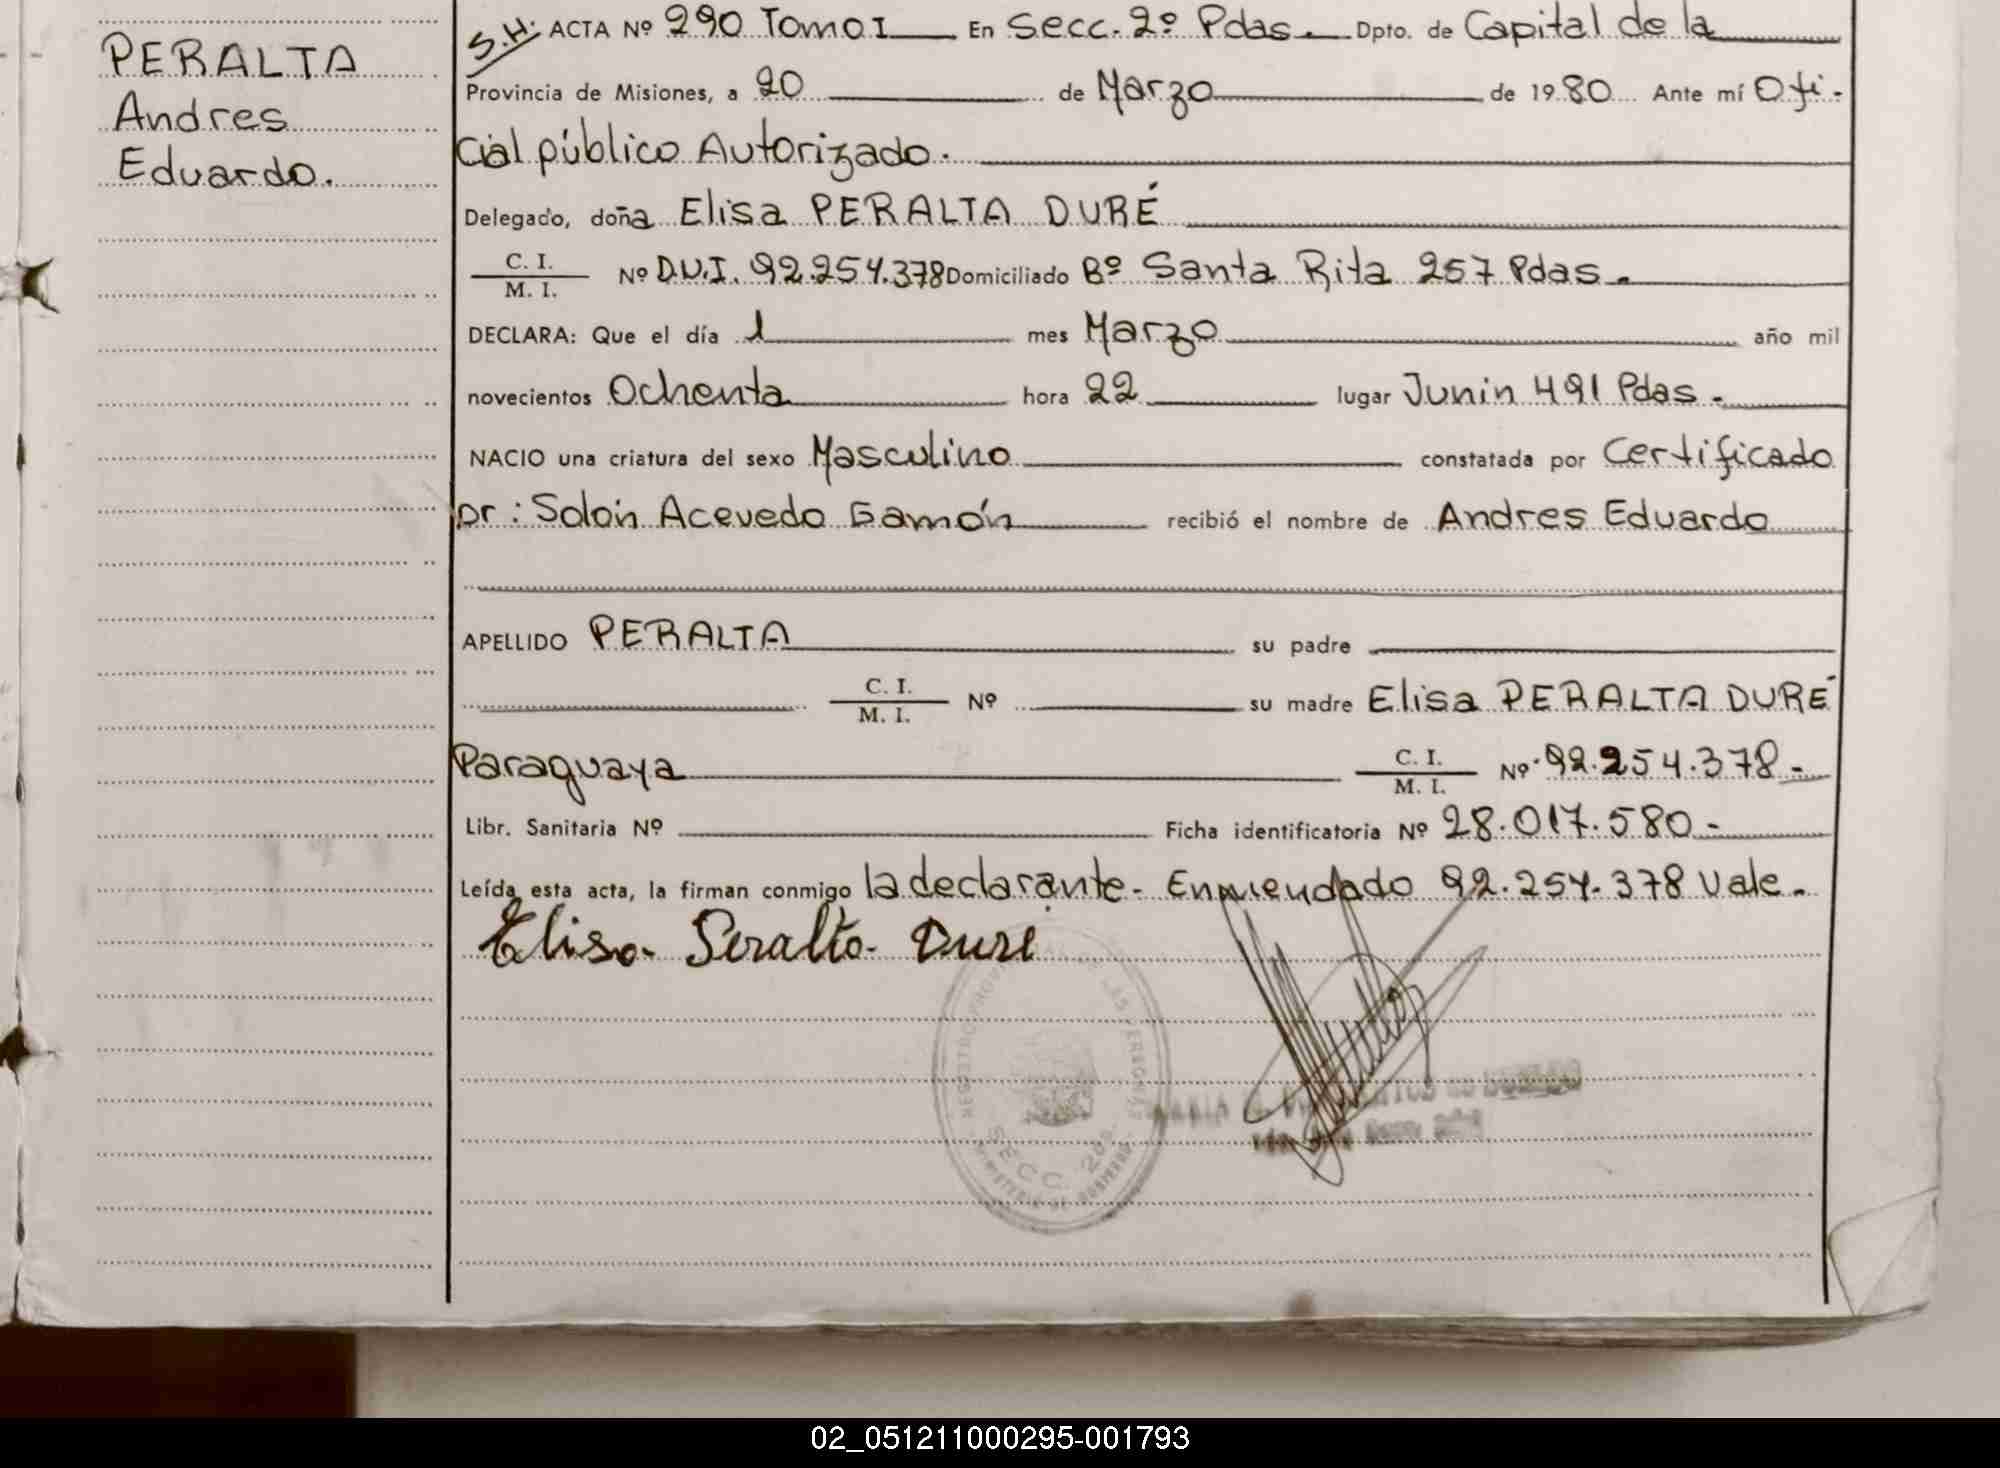 PERALTA
Andres
Eduardo.
S.H: ACTA Nº 290 Tomo I En Secc. 2º Pdas. Dpto. de Capital de la
Provincia de Misiones, a 20 de Marzo de 1980 Ante mí Ofi-
cial público Autorizado.
Delegado, doña Elisa PERALTA DURÉ
C. I. / M. I. Nº D.N.I. 92.254.378 Domiciliado Bº Santa Rita 257 Pdas.
DECLARA: Que el día 1 mes Marzo año mil
novecientos Ochenta hora 22 lugar Junin 491 Pdas.
NACIO una criatura del sexo Masculino constatada por Certificado
Dr: Solón Acevedo Gamón recibió el nombre de Andres Eduardo
APELLIDO PERALTA su padre
C. I. / M. I. Nº su madre Elisa PERALTA DURÉ
Paraguaya C. I. / M. I. Nº 92.254.378-
Libr. Sanitaria Nº Ficha identificatoria Nº 28.017.580-
Leída esta acta, la firman conmigo la declarante- Enmendado 92.254.378 Vale.
Elisa Peralta Duré
REGISTRO PROVINCIAL DE LAS PERSONAS
SECC. 2da.
MINISTERIO DE GOBIERNO
02_051211000295-001793